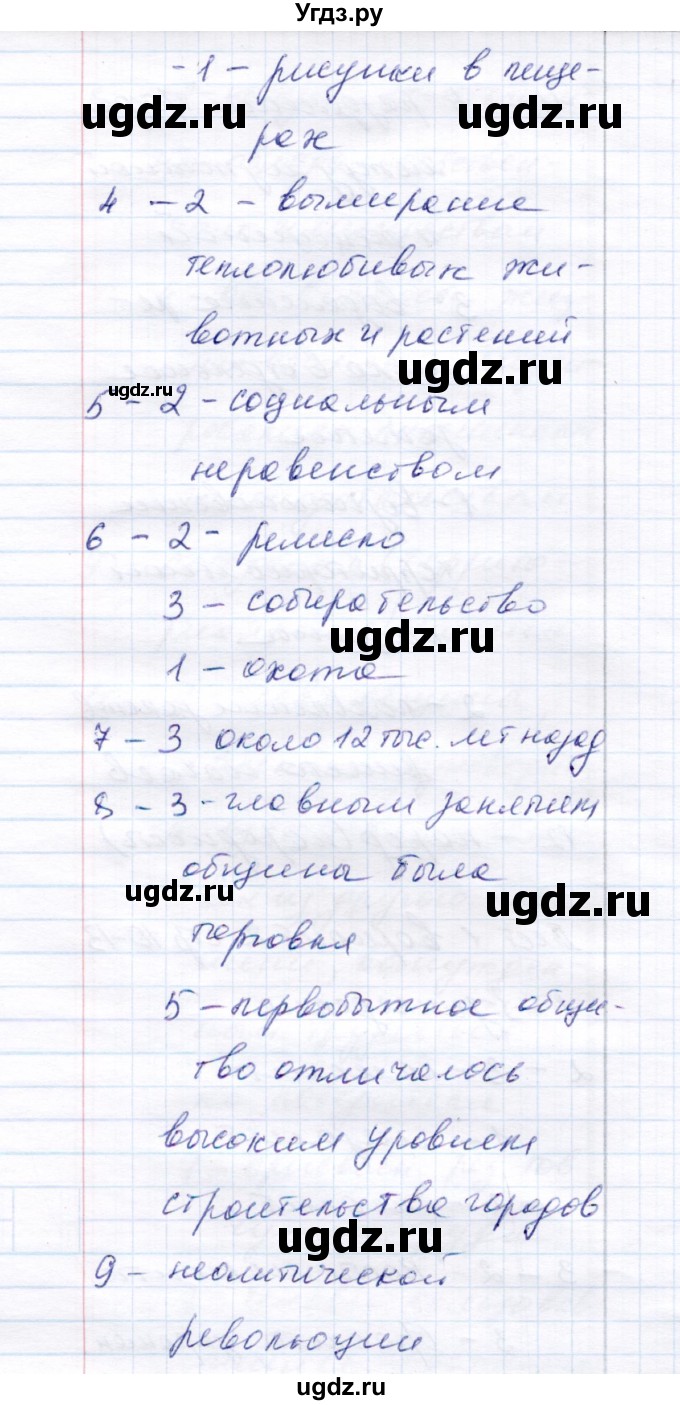 Угдз.ру
- 1 - рисунки в пеще-
ugdz.ru ugdz.ru
рах
4 - 2 - вымирание
теплолюбивых жи-
вотных и растений
ugdz.ru
ugdz.ru
5 - 2 - социальным
неравенством
6 - 2 - ремесло
3 - собирательство
ugdz.ru
1 - охота
7 - 3 около 12 тыс. лет назад
8 - 3 - главным занятием
общины была
ugdz.ru ugdz.ru
торговля
5 - первобытное общес-
тво отличалось
высоким уровнем
строительства городов
ugdz.ru
9 - неолитической
революции
ugdz.ru